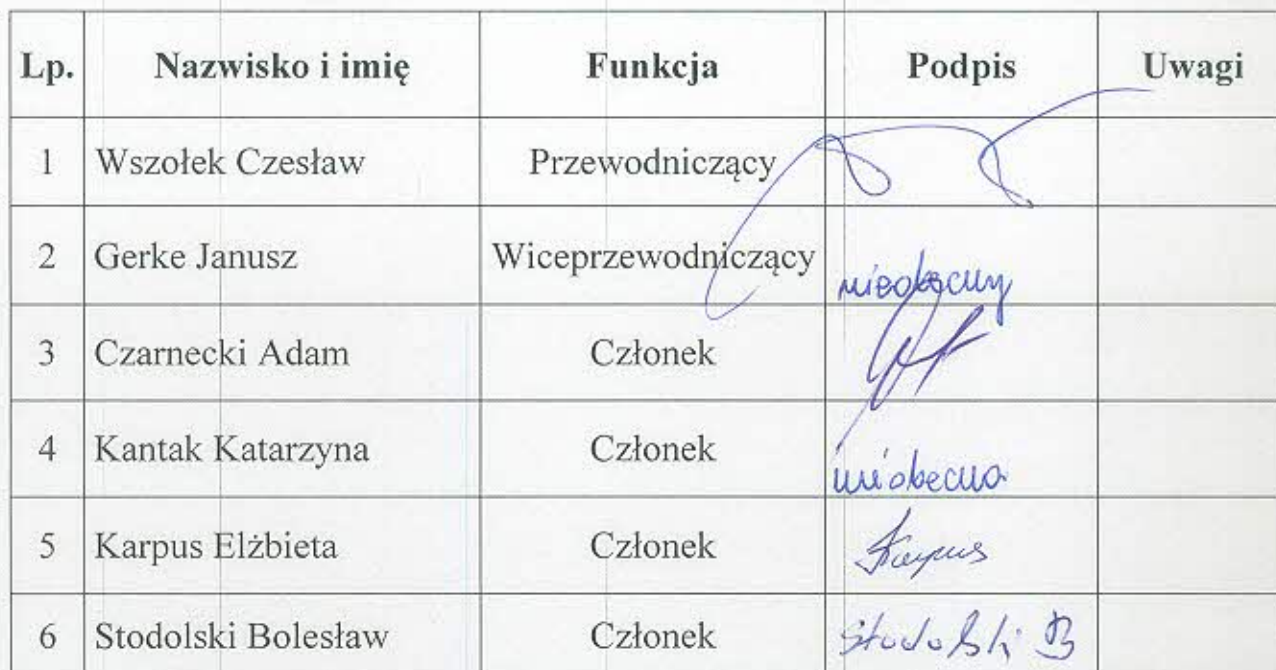 Lp. Nazwisko i imię Funkcja Podpis Uwagi
1 Wszołek Czesław Przewodniczący
2 Gerke Janusz Wiceprzewodniczący nieobecny
3 Czarnecki Adam Członek
4 Kantak Katarzyna Członek nieobecna
5 Karpus Elżbieta Członek Karpus
6 Stodolski Bolesław Członek Stodolski B